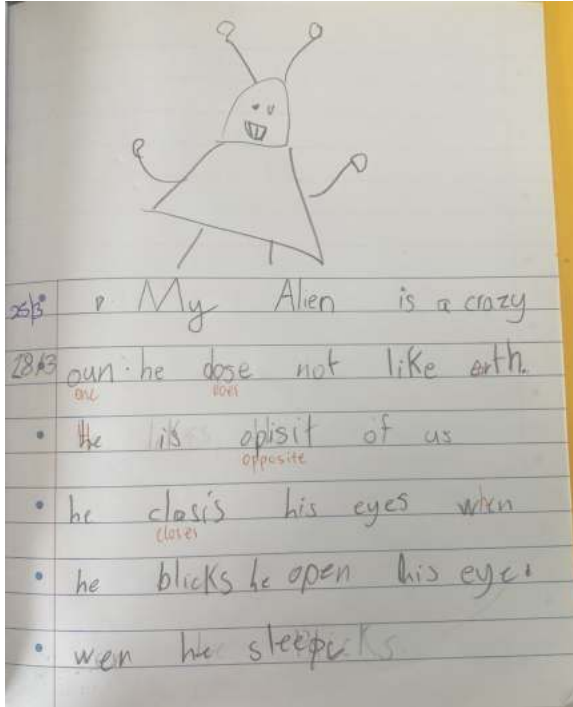 25/3 My Alien is a crazy
28/3 oun. he dose not like erth.
one does
he is oplisit of us
opposite
he closis his eyes when
closes
he blicks he open his eye.
wen he sleep